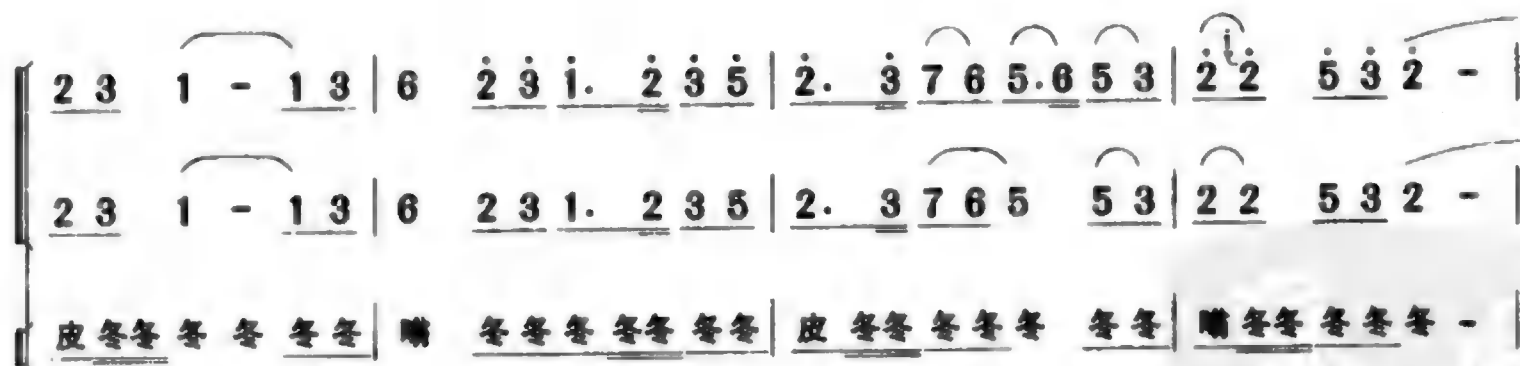 2 3 1 - 1 3 | 6 2̇ 3̇ 1̇. 2̇ 3̇ 5̇ | 2̇. 3̇ 7 6 5.6 5 3 | 2̇ 2̇ 5̇ 3̇ 2̇ - |
2 3 1 - 1 3 | 6 2 3 1. 2 3 5 | 2. 3 7 6 5 5 3 | 2 2 5 3 2 - |
皮 冬冬 冬 冬 冬 冬 | 冬 冬 冬 冬冬 冬 冬 | 皮 冬冬 冬 冬 冬 冬 冬 | 冬冬 冬 冬 冬 - |